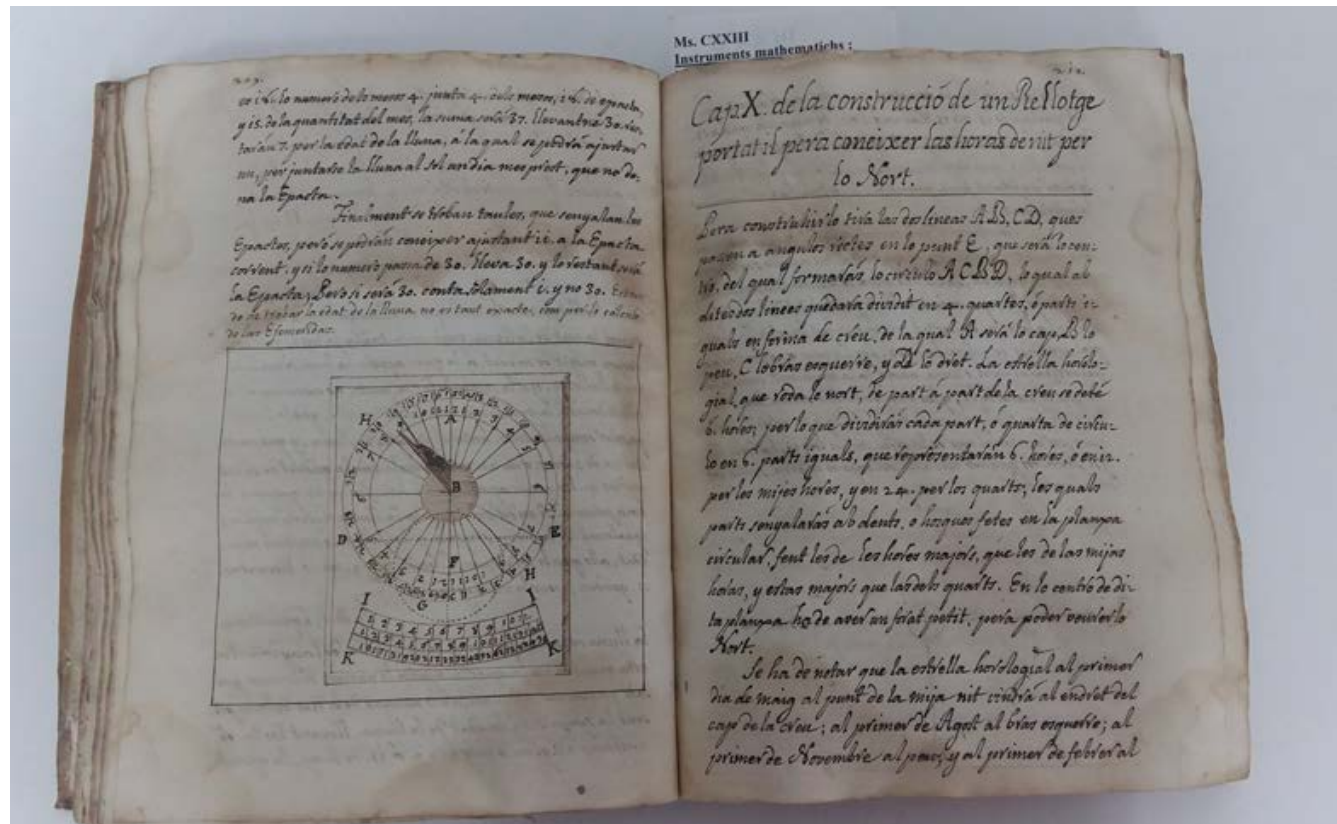 Ms. CXXIII
Instruments mathematichs :
209.
lo numero dels mesos 4. junta 4. dels mesos, de epacta,
y 15. de la quantitat del mes, la suma será 37. llevantne 30. res,
taran 7. per la edat de la lluna, á la qual se podrá ajustar
un, per juntarse la lluna al sol un dia mes prest, que no do,
na la Epacta.
Finalment se troban taules, que senyalan les
Epactes, peró se podrán coneixer ajustant 11. a la Epacta
corrent, y si lo numero passa de 30. lleva 30. y lo restant será
la Epacta; Pero si será 30. conta solament y no 30.
de trobar la edat de la lluna no es tant exacte, com per lo calcul
de las Efemeridas.
H
A
B
D
E
F
H
G
I
I
K
K
Cap. X. de la construcció de un Rellotge
portatil pera coneixer las horas de nit per
lo Nort.
Pera construhirlo tira las dos lineas AB, CD, ques
passen a angulos rectes en lo punt E, que será lo cen:
tro, del qual formarás lo circulo ACBD, lo qual ab
dites dos lineas quedará dividit en 4. quartes, ó parts i:
guals en forma de creu, de la qual A será lo cap, B lo
peu, C lo bras esquerre, y D lo dret. La estrella horolo:
gial, que roda lo nort, de part á part de la creu se deté
6. hores; per lo que dividirás cada part, ó quarta de circu:
lo en 6. parts iguals, que representarán 6. hores, ó en 12.
per les mijes hores, y en 24. per los quarts; les quals
parts senyalarás ab dents, o hosques fetes en la planxa
circular, fent les de les hores majors, que les de las mijas
horas, y estas majors que las dels quarts. En lo centro de di:
ta planxa ha de aver un forat petit, pera poder veurer lo
Nort.
Se ha de notar que la estrella horologial al primer
dia de maig al punt de la mija nit vindrá al endret del
cap de la creu; al primer de Agost al bras esquerre; al
primer de Novembre al peu; y al primer de febrer al